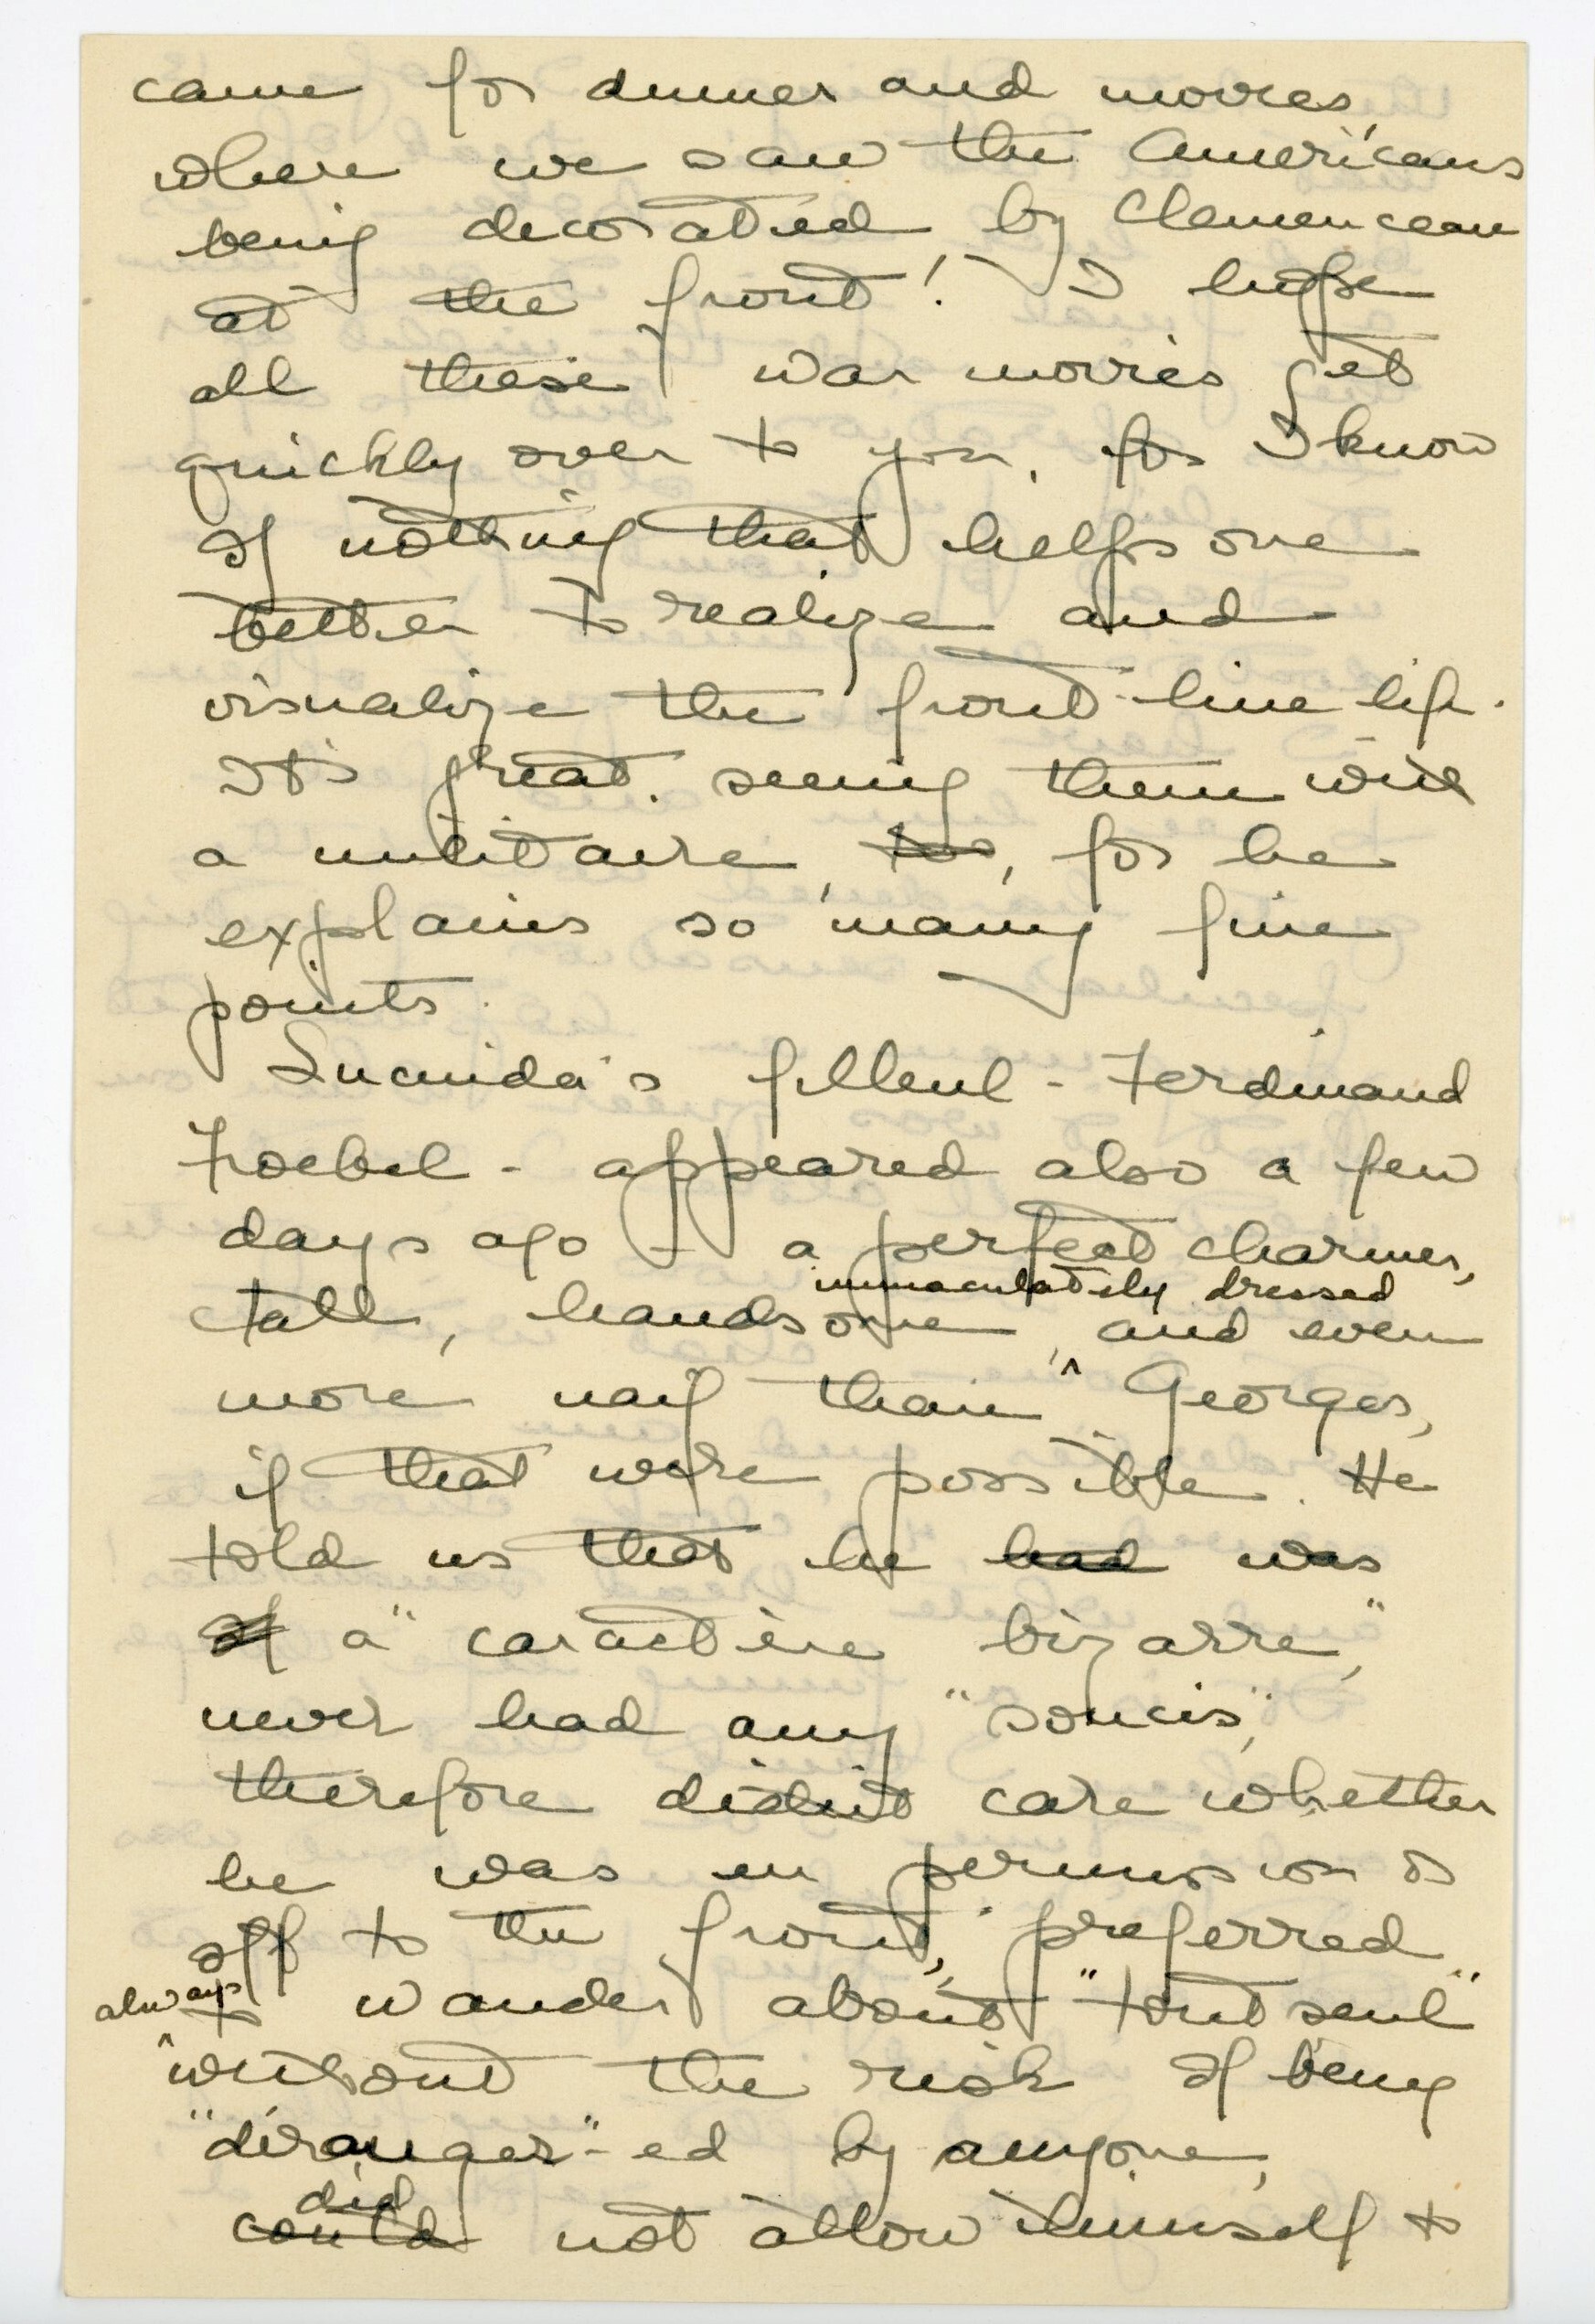 came for dinner and movies,
where we saw the Americans
being decorated by Clemenceau
at the front! I hope
all these war movies get
quickly over to you, for I know
of nothing that helps one
better to realize and
visualize the front-line life.
It's great seeing them with
a militaire, too, for he
explains so many fine
points.
Lucinda's filleul - Ferdinand
Froebel - appeared also a few
days ago - a perfect charmer,
immaculately dressed
tall, handsome, ^ and even
more naif than Georges,
if that were possible. He
told us that he had was
of a "caractère bizarre,"
never had any "soucis",
therefore didn't care whether
he was en permission or
off to the front, preferred
always
^ to wander about "tout seul"
without the risk of being
"déranger"-ed by anyone,
did
could not allow himself to